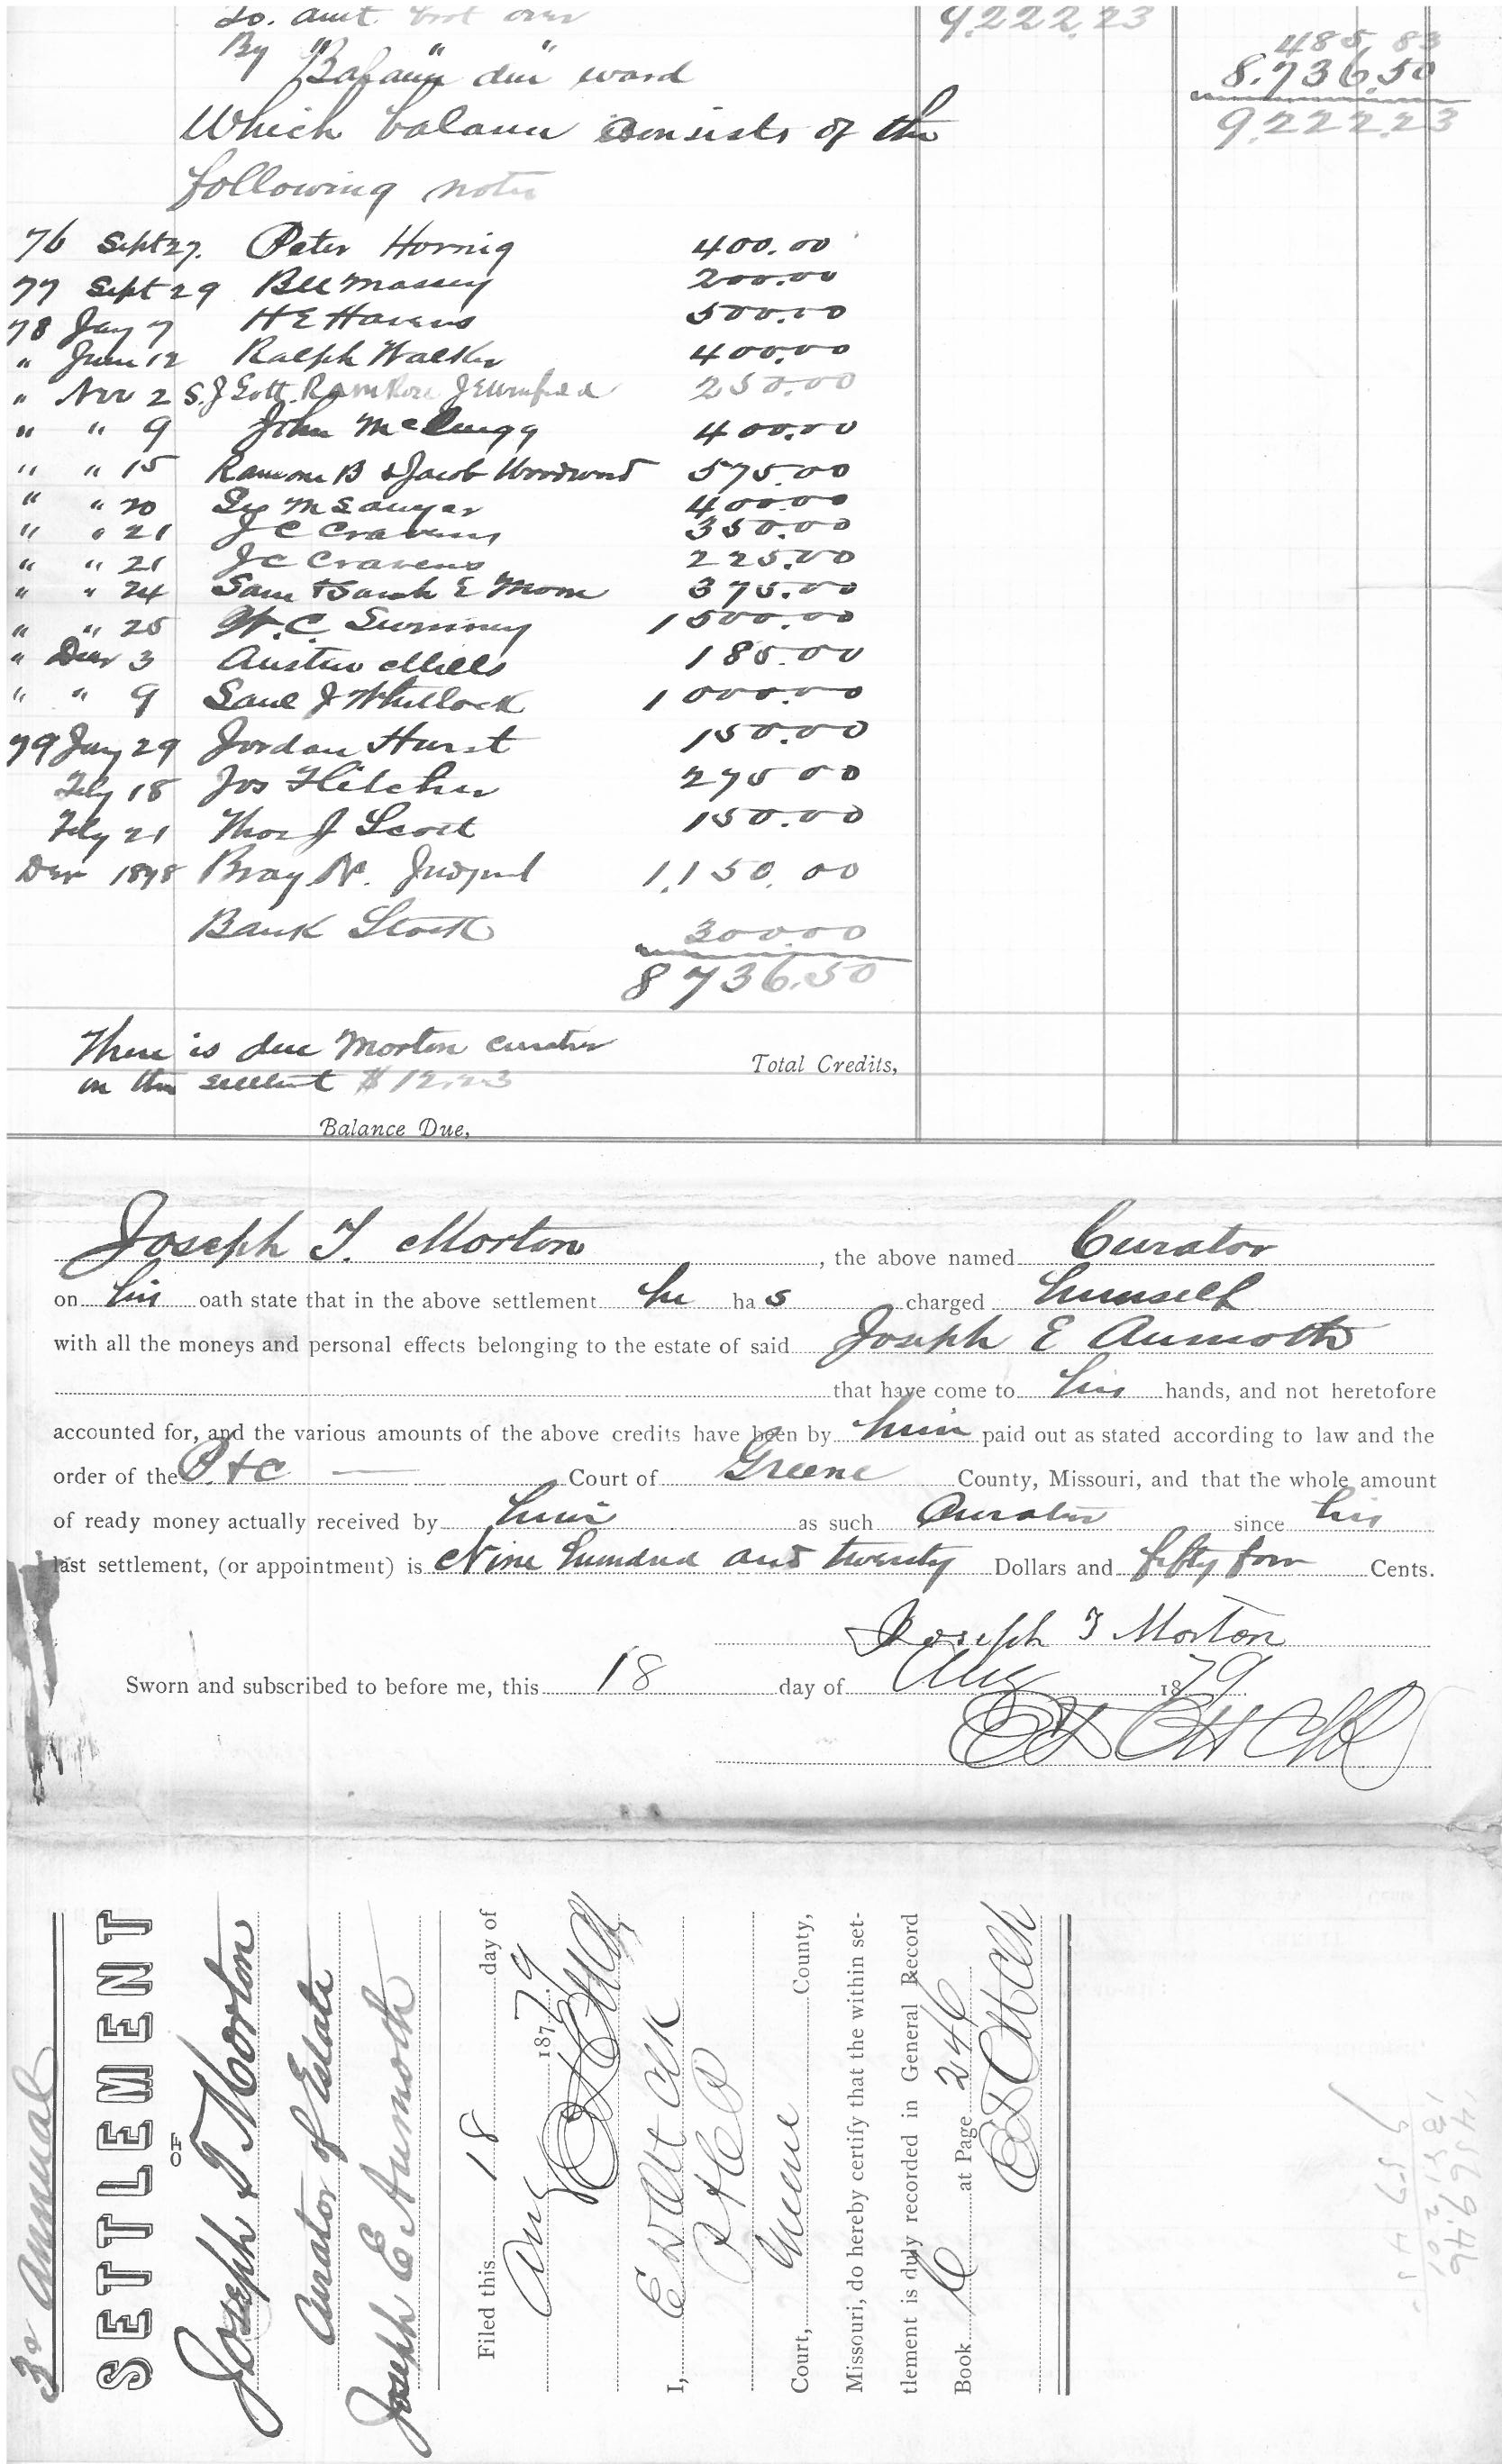 To. amt. brot over 9,222.23
By " " " 485 83
Balann due ward 8.736.50
Which balance consists of the 9,222.23
following notes
76 Sept 27. Peter Hornig 400.00
77 Sept 29 Massey 200.00
78 Jany 7 H E Havens 500.00
" June 12 Ralph Walker 400.00
" Nov 2 S. J Gott. 250.00
" " 9 John McClurgg 400.00
" " 15 Ransome B & Jacob Woodward 575.00
" " 20 Geo M Sawyer 400.00
" " 21 J C Cravens 350.00
" " 21 J C Cravens 225.00
" " 24 Sam & Sarah E 375.00
" " 25 W. C. Summey 1500.00
" Decr 3 Austin Mills 185.00
" " 9 Saml J Whitlock 1000.00
79 Jany 29 Jordan Hurst 150.00
Feby 18 Jos 275 00
Feby 21 Thos J Scott 150.00
Decr 1878 Bray N. Judgmt 1,150.00
Bank Stock 300.00
8736.50
There is due Morton curator
in this settlent $12.23
Total Credits,
Balance Due,
Joseph T. Morton, the above named Curator
on his oath state that in the above settlement he has charged himself
with all the moneys and personal effects belonging to the estate of said Joseph E Aumoth
that have come to his hands, and not heretofore
accounted for, and the various amounts of the above credits have been by him paid out as stated according to law and the
order of the P. & C Court of Greene County, Missouri, and that the whole amount
of ready money actually received by him as such Curator since his
last settlement, (or appointment) is Nine hundred and twenty Dollars and fifty four Cents.
Joseph T Morton
Sworn and subscribed to before me, this 18 day of Aug 1879
3d Annual
SETTLEMENT
OF
Joseph T Morton
Curator of Estate
Joseph E Aumoth
Filed this 18 day of
Aug 1879
I,
Court, Greene County,
Missouri, do hereby certify that the within set-
tlement is duly recorded in General Record
Book at Page 246